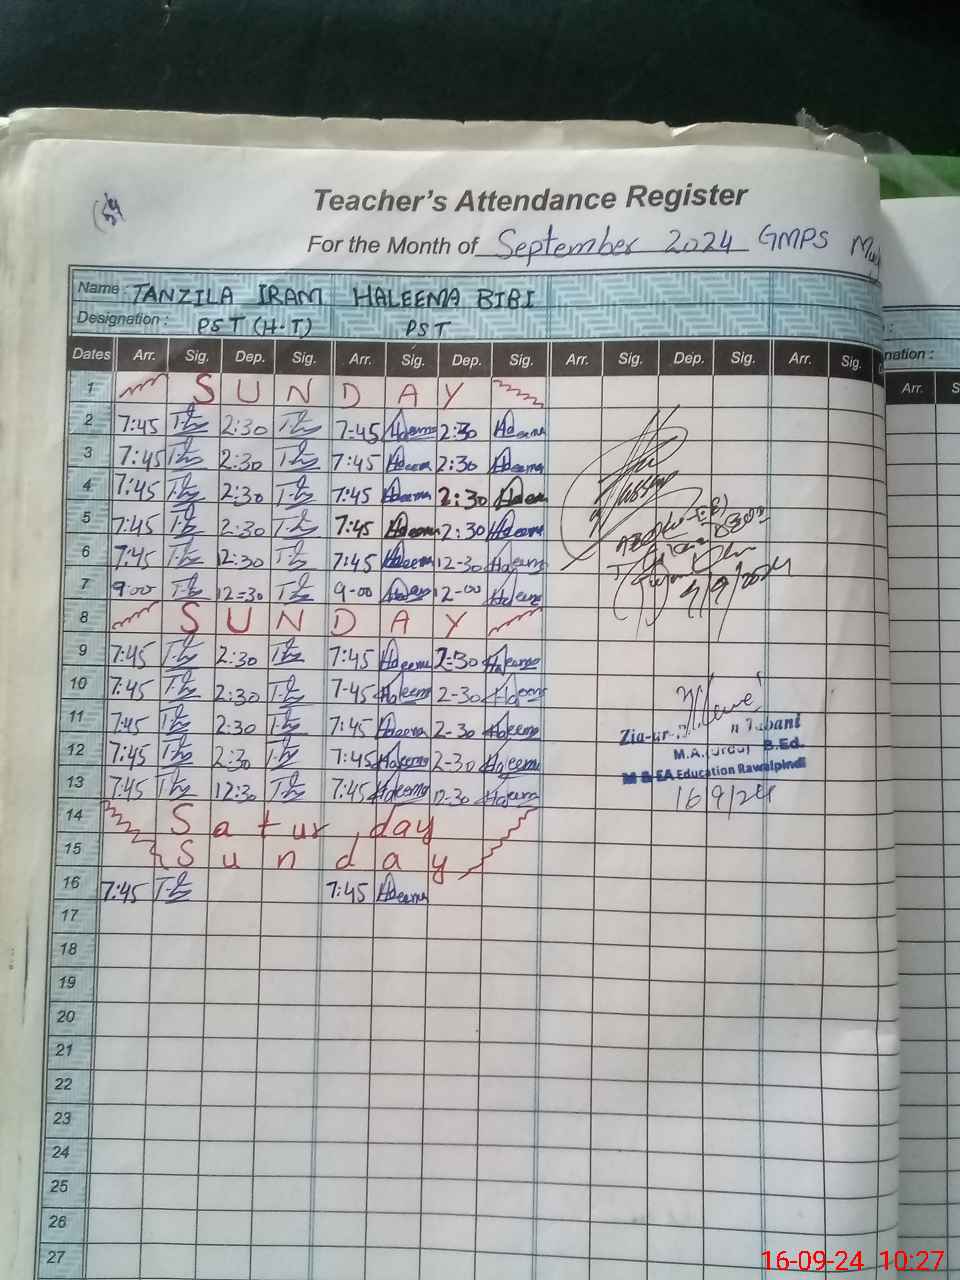 Teacher's Attendance Register
For the Month of September 2024 GMPS
Name : TANZILA IRAM HALEEMA BIBI
Designation : PST (H-T) PST
nation :
Dates Arr. Sig. Dep. Sig. Arr. Sig. Dep. Sig. Arr. Sig. Dep. Sig. Arr. Sig.
Arr. S
1 SUNDAY
2 7:45 2:30 7-45 Haleema 2:30 Haleema
3 7:45 2:30 7:45 Haleema 2:30 Haleema
4 7:45 2:30 7:45 Haleema 2:30 Haleema
5 7:45 2:30 7:45 Haleema 2:30 Haleema
6 7:45 12:30 7:45 Haleema 12-30 Haleema
7 9:00 12=30 9-00 Haleema 12-00 Haleema
8 SUNDAY
9 7:45 2:30 7:45 Haleema 2=30 Haleema
10 7:45 2:30 7-45 Haleema 2-30 Haleema
11 7:45 2:30 7:45 Haleema 2-30 Haleema
12 7:45 2:30 7:45 Haleema 2-30 Haleema
13 7:45 12:30 7:45 Haleema 12-30 Haleema
14 Saturday
15 Sunday
16 7:45 7:45 Haleema
17
18
19
20
21
22
23
24
25
26
27
Zia-ur-
M.A.(Urdu) B.Ed.
Education Rawalpindi
16/9/24
16-09-24 10:27